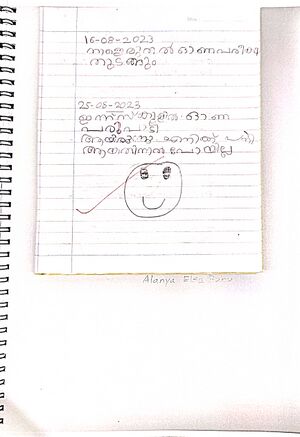 16-08-2023
നാളെ മുതൽ ഓണപരീക്ഷ
തുടങ്ങും
25-08-2023
ഇന്ന് സ്കൂളിൽ ഓണ
പരുപാടി
ആയിരുന്നു എനിക്ക് പനി
ആയതിനാൽ പോയില്ല
Alanya